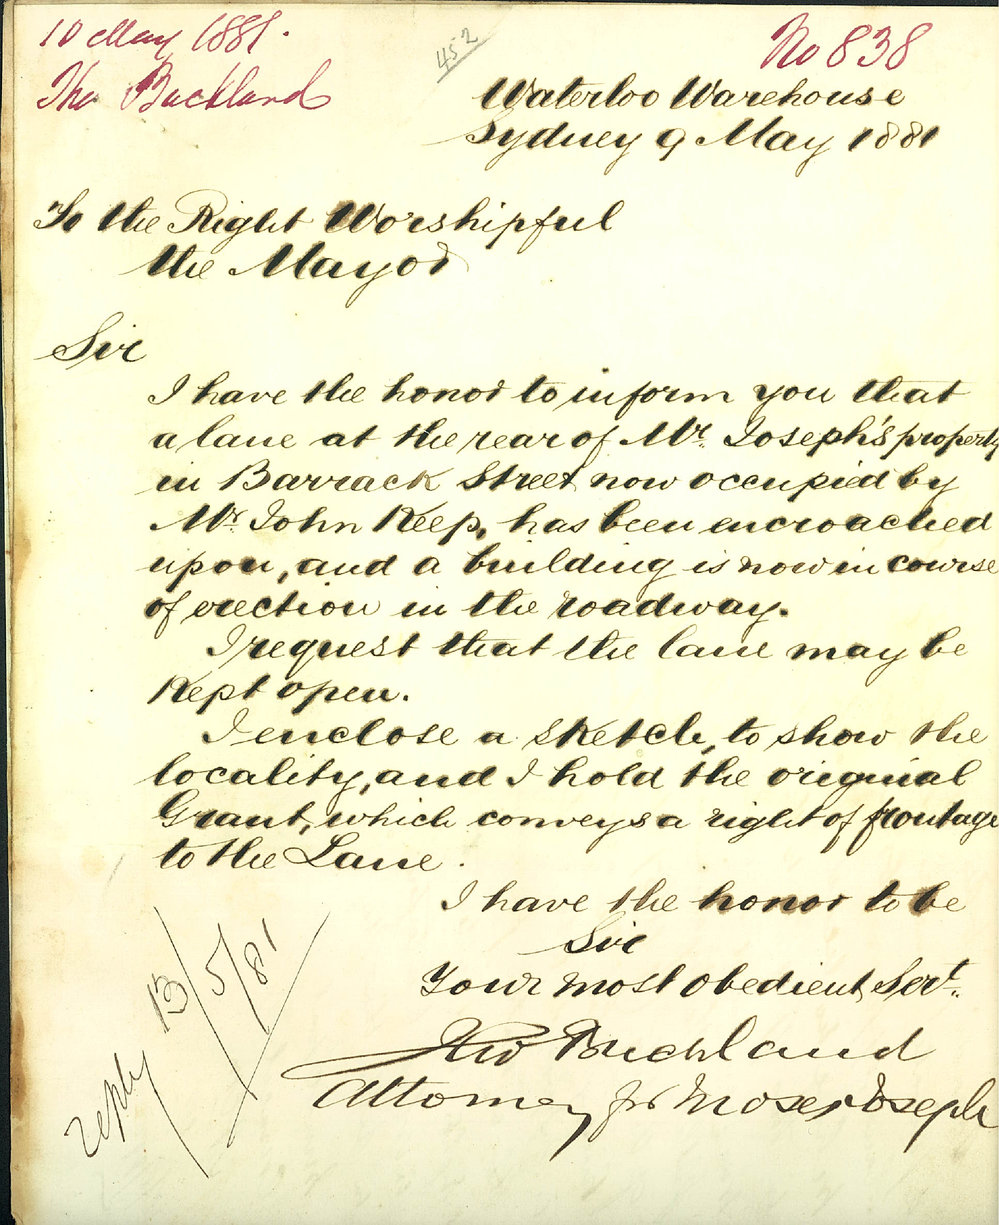 10 May 1881.
Tho Buckland
452
No 838
Waterloo Warehouse
Sydney 9 May 1881
To the Right Worshipful
the Mayor
Sir
I have the honor to inform you that
a lane at the rear of Mr. Joseph's property
in Barrack Street, now occupied by
Mr. John Keep, has been encroached
upon, and a building is now in course
of erection in the roadway.
I request that the lane may be
kept open.
I enclose a sketch, to show the
locality, and I hold the original
Grant, which conveys a right of frontage
to the Lane.
I have the honor to be
Sir
Your most obedient Servt.
Tho Buckland
Attorney for Moses Joseph
reply 13/5/81